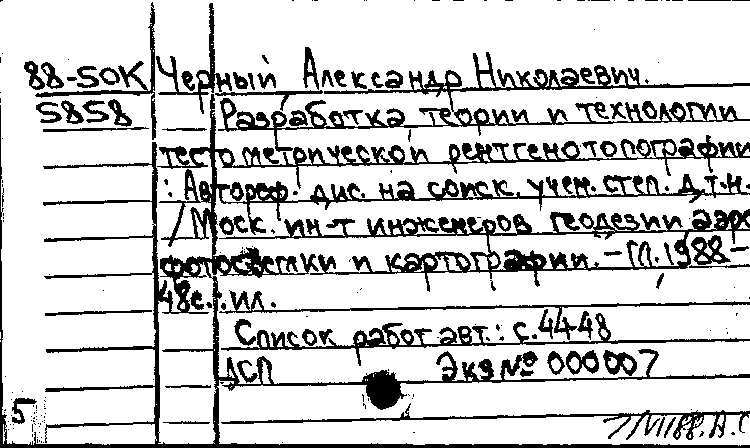 88-50К Черный Александр Николаевич.
5858 Разработка теории и технологии
тестометрической рентгенотопографии
: Автореф. дис. на соиск. учен. степ. д.т.н.
/ Моск. ин-т инженеров геодезии аэро
фотосъемки и картографии. – М. 1988 –
48с.: ил.
Список работ авт.: с. 44-48
ДСП Экз № 000007
5